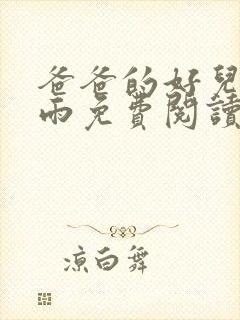 爸爸的好兒
雨免費閱讀
涼白舞